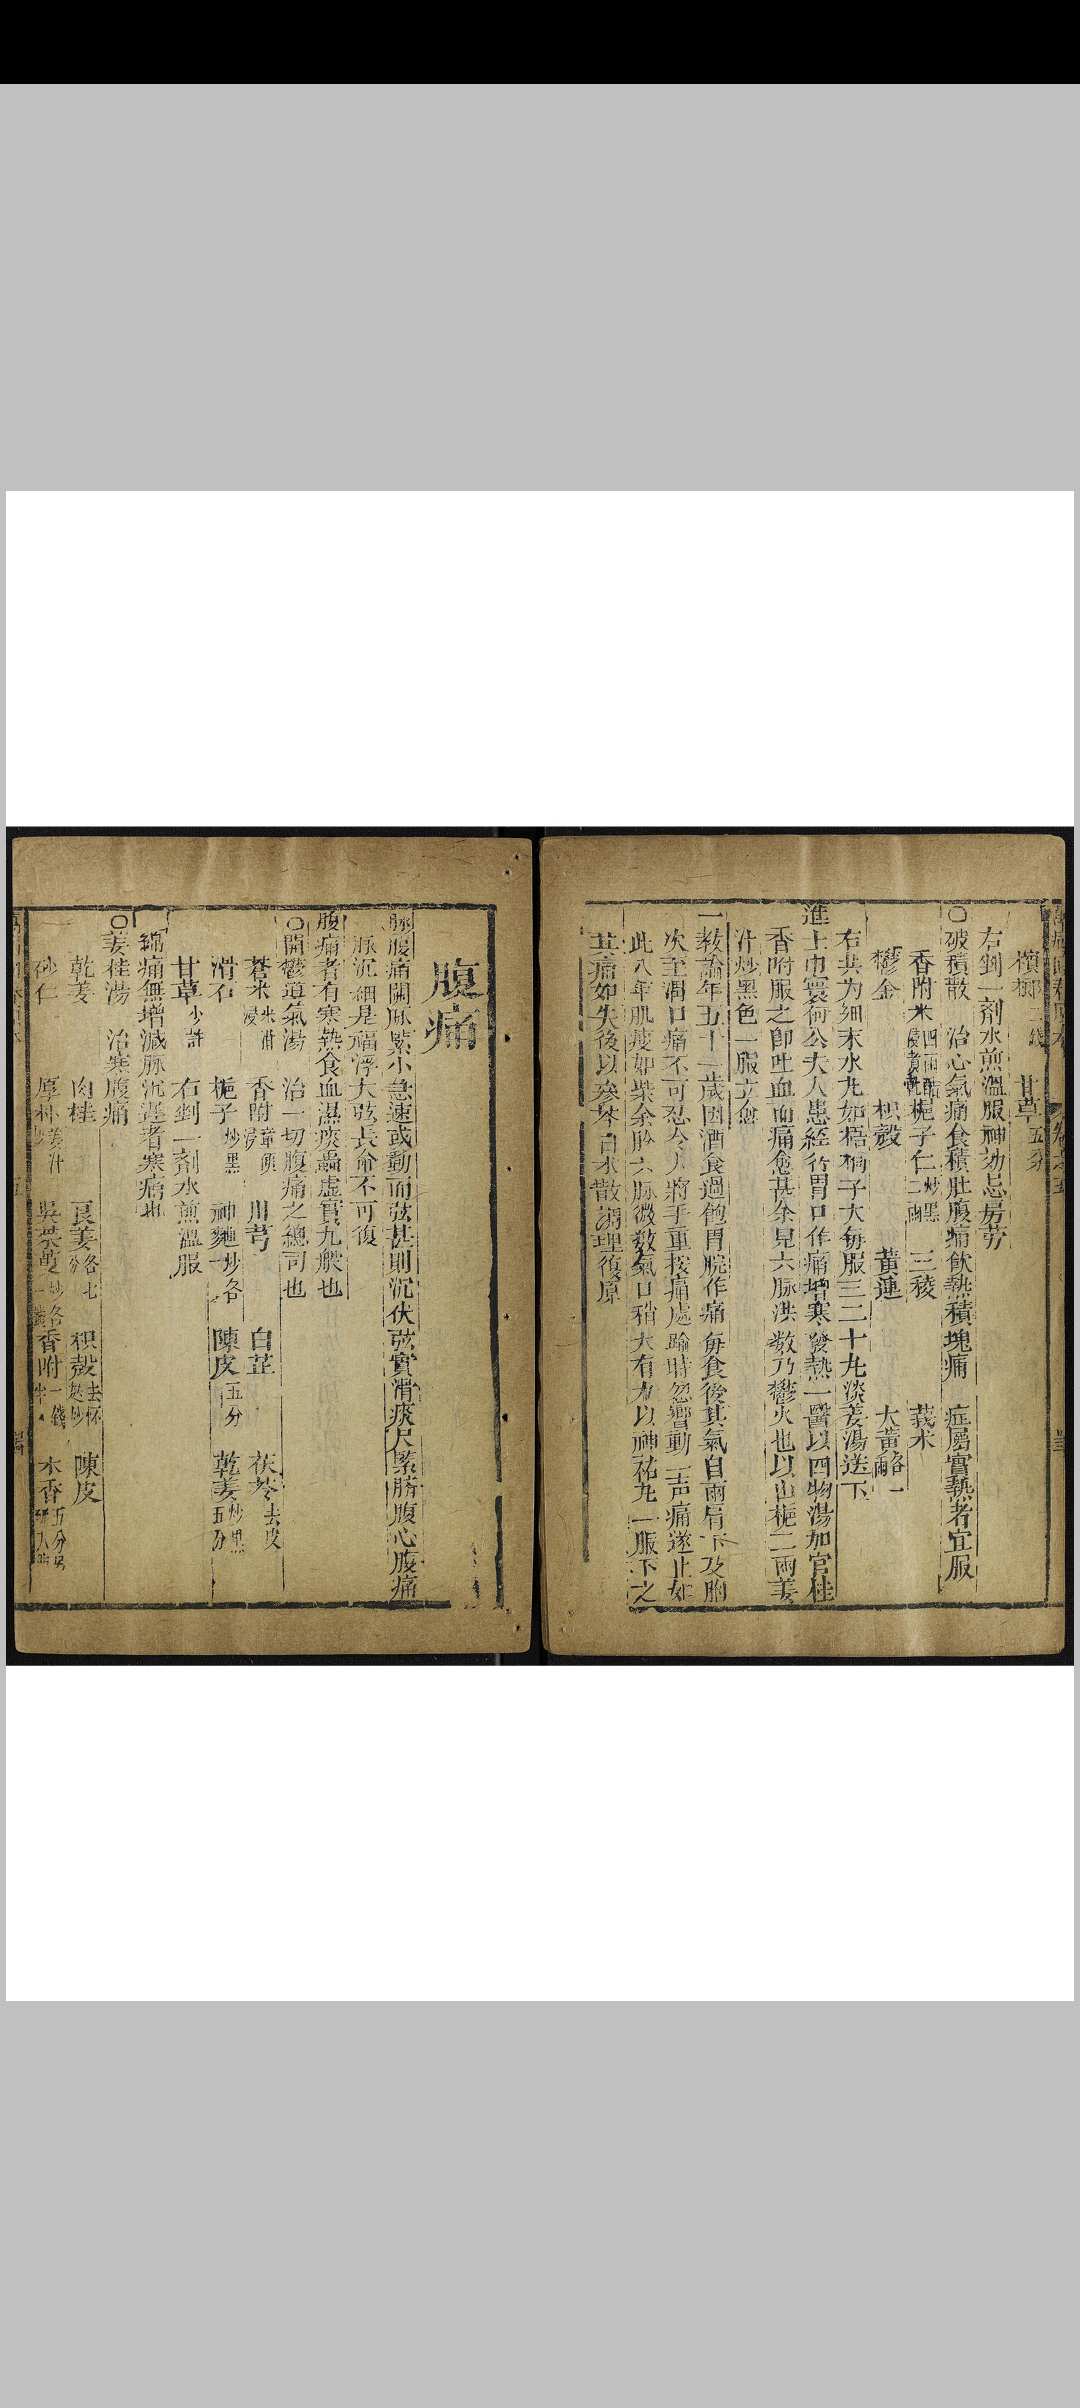 檳榔二錢 甘草五分
右剉一剤水煎溫服神効忌房劳
○破積散 治心氣痛食積肚腹痛飲熱積塊痛 症屬實熱者宜服
香附米四兩醋浸煮乾 梔子仁炒黑二兩 三稜 莪朮
鬱金 枳殼 黃蓮 大黃各一兩
右共为細末水丸如梧桐子大每服三二十丸淡姜湯送下
進士巾寰荷公夫人患経行胃口作痛增寒發熱一醫以四物湯加官桂
香附服之即吐血而痛愈甚余見六脉洪数乃鬱火也以山梔二兩姜
汁炒黑色一服立愈
一教諭年五十一歲因酒食過飽胃脘作痛每食後其氣自兩肩下及胸
次至胃口痛不可忍令人將手重按痛處踰時忽響動一声痛遂止如
此八年肌瘦如柴余胗六脉微数氣口稍大有力以神祐丸一服下之
其痛如失後以參苓白朮散調理復原
腹痛
脉腹痛關脉緊小急速或動而弦甚則沉伏弦實滑痰尺緊臍腹心腹痛
脉沉細是福浮大弦長命不可復
腹痛者有寒熱食血濕痰蟲虛實九般也
○開鬱道氣湯 治一切腹痛之總司也
蒼朮米泔浸 香附童便浸 川芎 白芷 茯苓去皮
滑石 梔子炒黑 神麯炒各一 陳皮五分 乾姜炒黑五分
甘草少許 右剉一剤水煎溫服
綿痛無增減脉沉遲者寒痛也
○姜桂湯 治寒腹痛
乾姜 肉桂 良姜各七分 枳殼去穰麸炒 陳皮
砂仁 厚朴姜汁炒 吳茱萸炒各一錢 香附一錢半 木香五分另研入